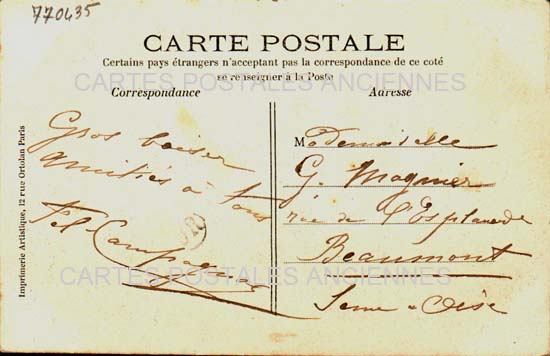 770435
CARTE POSTALE
Certains pays étrangers n'acceptent pas la correspondance de ce coté
se renseigner à la Poste
CARTES POSTALES ANCIENNES
Correspondance
Adresse
Gros baiser
amitiés à tous
Imprimerie Artistique, 12 rue Ortolan Paris
Mademoiselle
G. Magnier
rue de l'Esplanade
Beaumont
Seine & Oise
CARTES POSTALES ANCIENNES